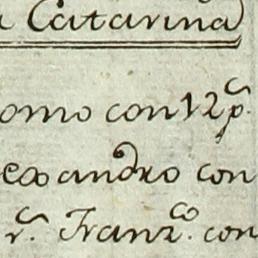 a Catarina
omo con 12 p.s
exandro con
r.s Franz.co con